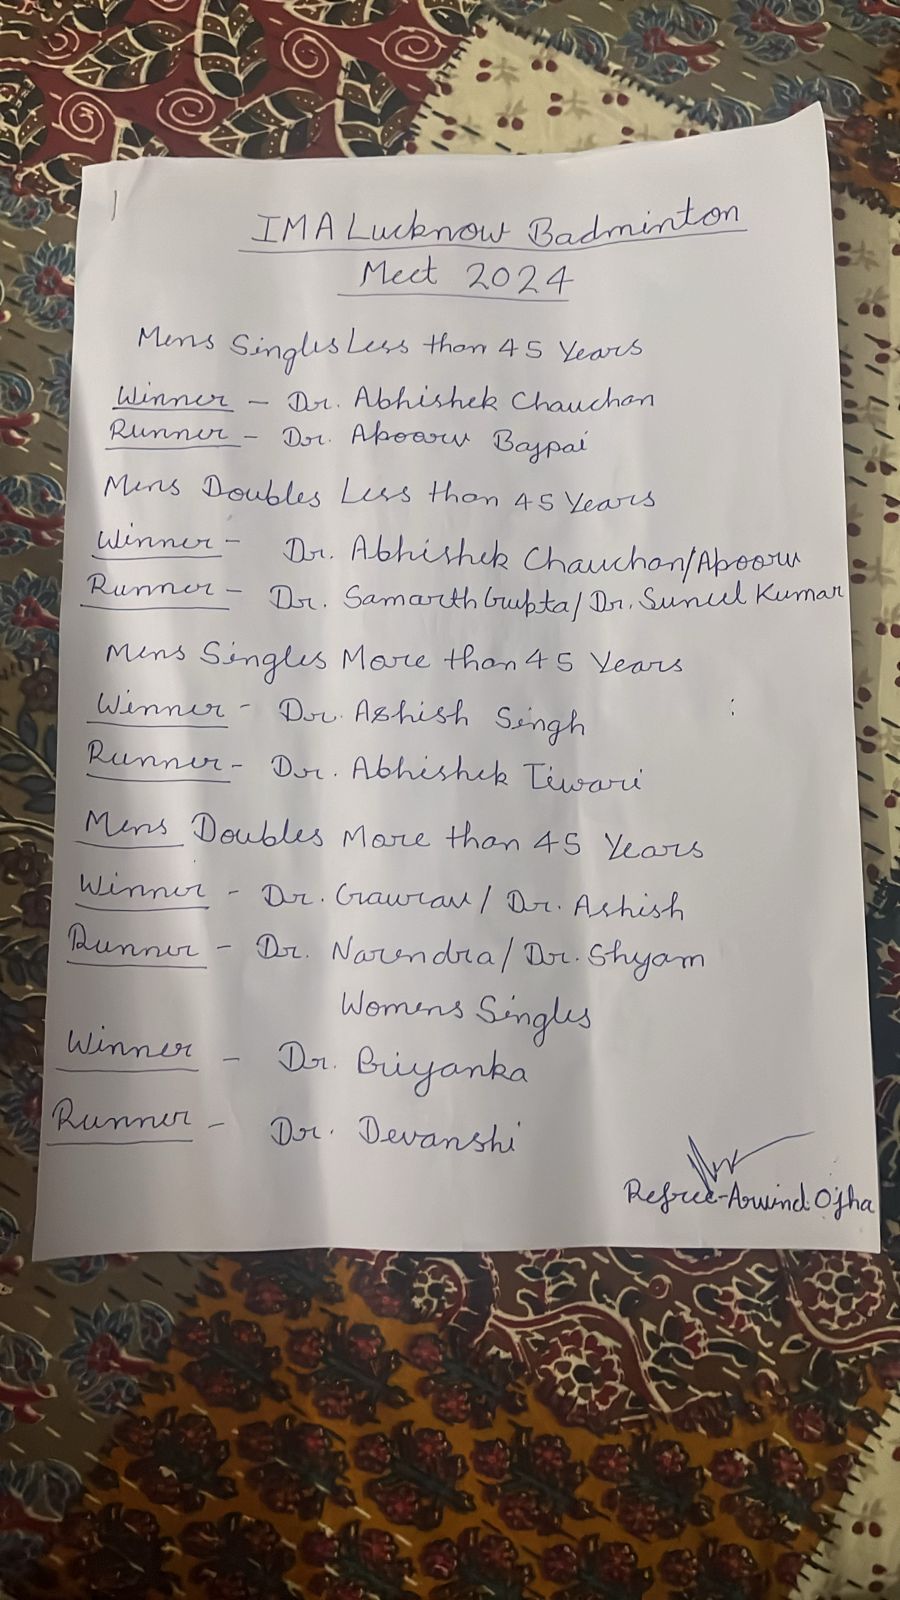 IMA Lucknow Badminton
Meet 2024
Mens Singles Less than 45 Years
Winner - Dr. Abhishek Chauchan
Runner - Dr. Apoorv Bajpai
Mens Doubles Less than 45 Years
Winner - Dr. Abhishek Chauchan/Apoorv
Runner - Dr. Samarth Gupta/Dr. Suneel Kumar
Mens Singles More than 45 Years
Winner - Dr. Ashish Singh
Runner - Dr. Abhishek Tiwari
Mens Doubles More than 45 Years
Winner - Dr. Gaurav / Dr. Ashish
Runner - Dr. Narendra / Dr. Shyam
Womens Singles
Winner - Dr. Priyanka
Runner - Dr. Devanshi
Refree-Arvind Ojha